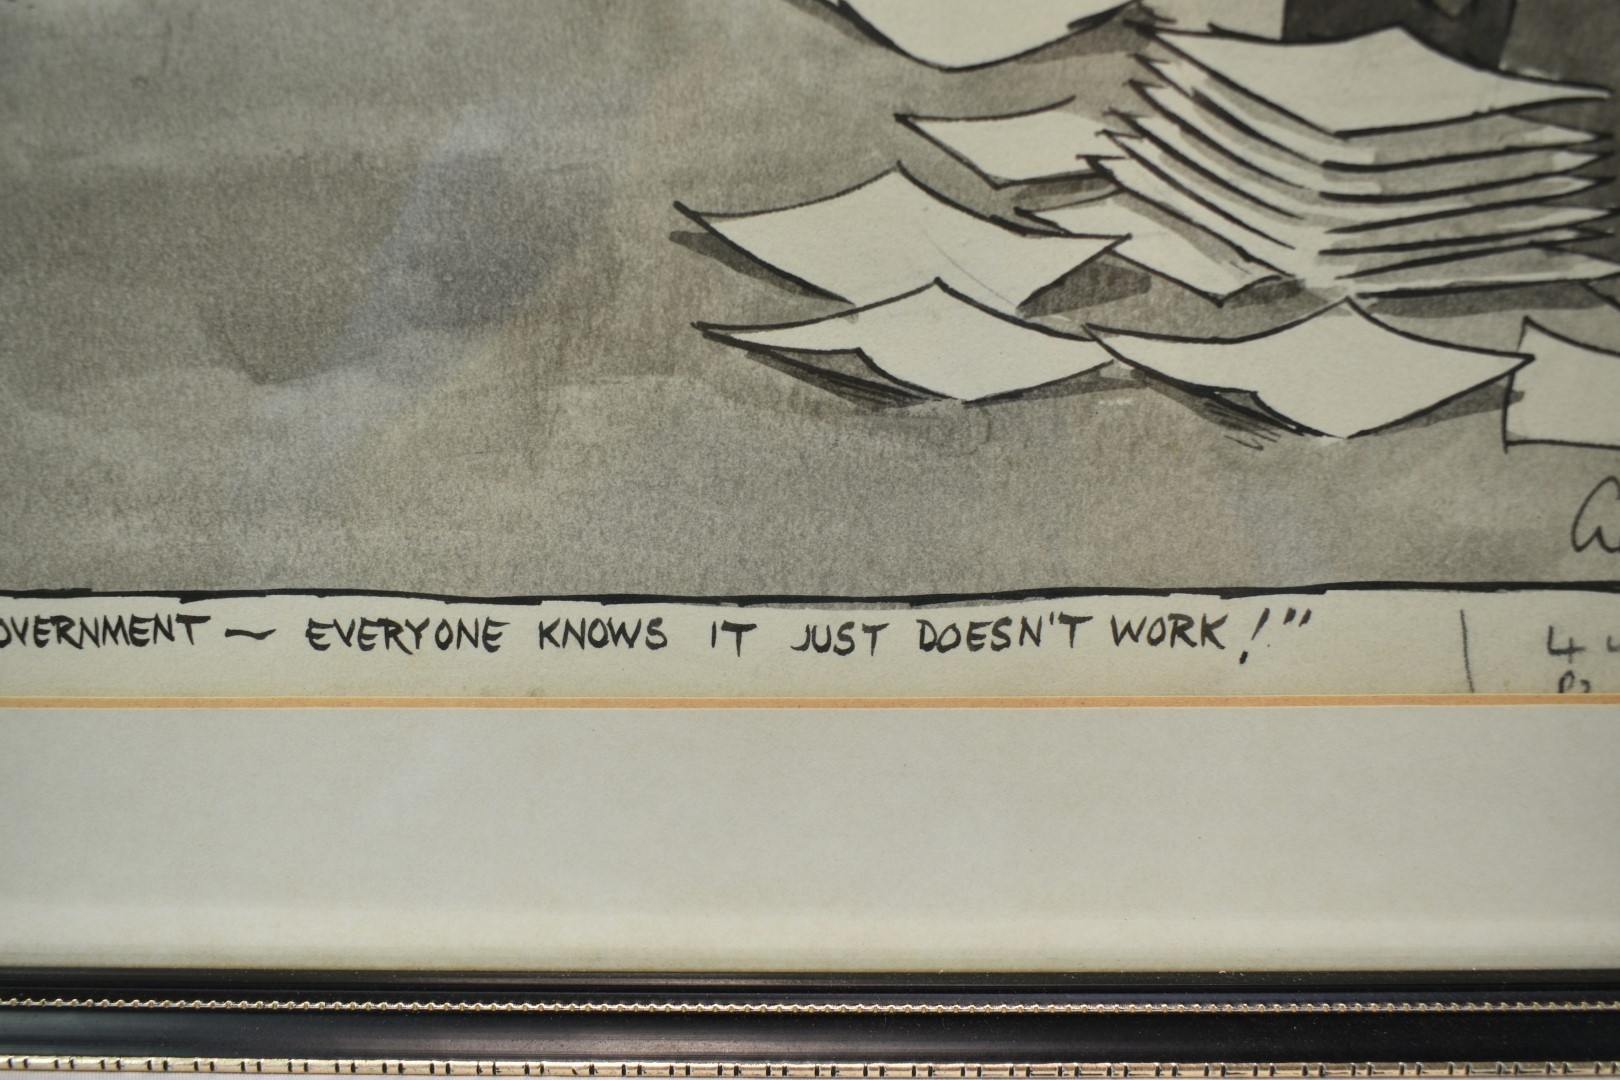 OVERNMENT ~ EVERYONE KNOWS IT JUST DOESN'T WORK!"